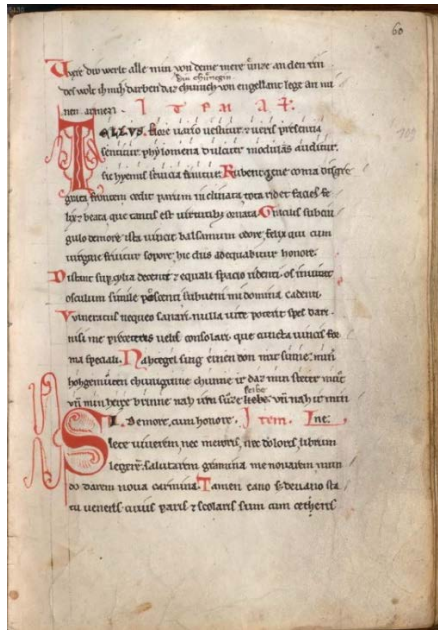 60
Uvere div werlt alle min von deme mere unze an den rin
diu chunegin
des wolt ih mih darben daz chunich von engellant lege an mi
nen armen. Item a
TELLVS flore vario vestitur. ⁊ veris presentia
sentitur. phylomena dulciter modulans auditur.
sic hyemis sevicia finitur. Rubent gene coma disgre
gata fronte cedit parum inclinata tota ridet facies fe
lix ⁊ beata que tantis est virtutibus ornata. Gracilis sub cin
gulo de more ista vincit balsamum odore felix qui cum
virgine fruitur sopore, hic diis adequabitur honore.
Distant sup cilia decenter ⁊ equali spacio ridenti. os invitat
osculum simile poscenti subveni mi domina cadenti.
Vulneratus nequeo sanari. nulla vite poterit spes dari
nisi me pre ceteris velis consolari. que cuncta vincis for
ma speciali. Nahtegel sing einen don mit sinne. miner
hohgemuten chuniginne chunde ir daz min steter muot
vñ min herze brinne nah irm suze libe. vñ nah ir minne
SI de more, cum honore. Item.
lete viverem, nec meroris, nec doloris, librum
legere. salutarem
darem nova carmina. Tamen cano